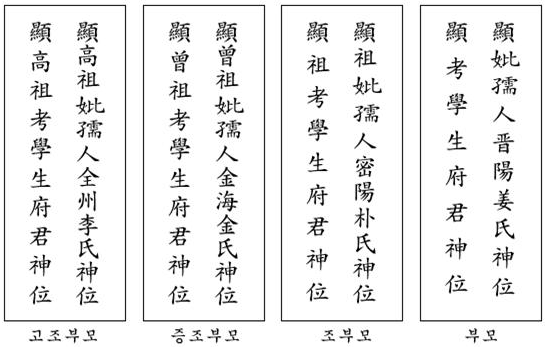 顯高祖考學生府君神位
顯高祖妣孺人全州李氏神位
고조부모
顯曾祖考學生府君神位
顯曾祖妣孺人金海金氏神位
증조부모
顯祖考學生府君神位
顯祖妣孺人密陽朴氏神位
조부모
顯考學生府君神位
顯妣孺人晋陽姜氏神位
부모